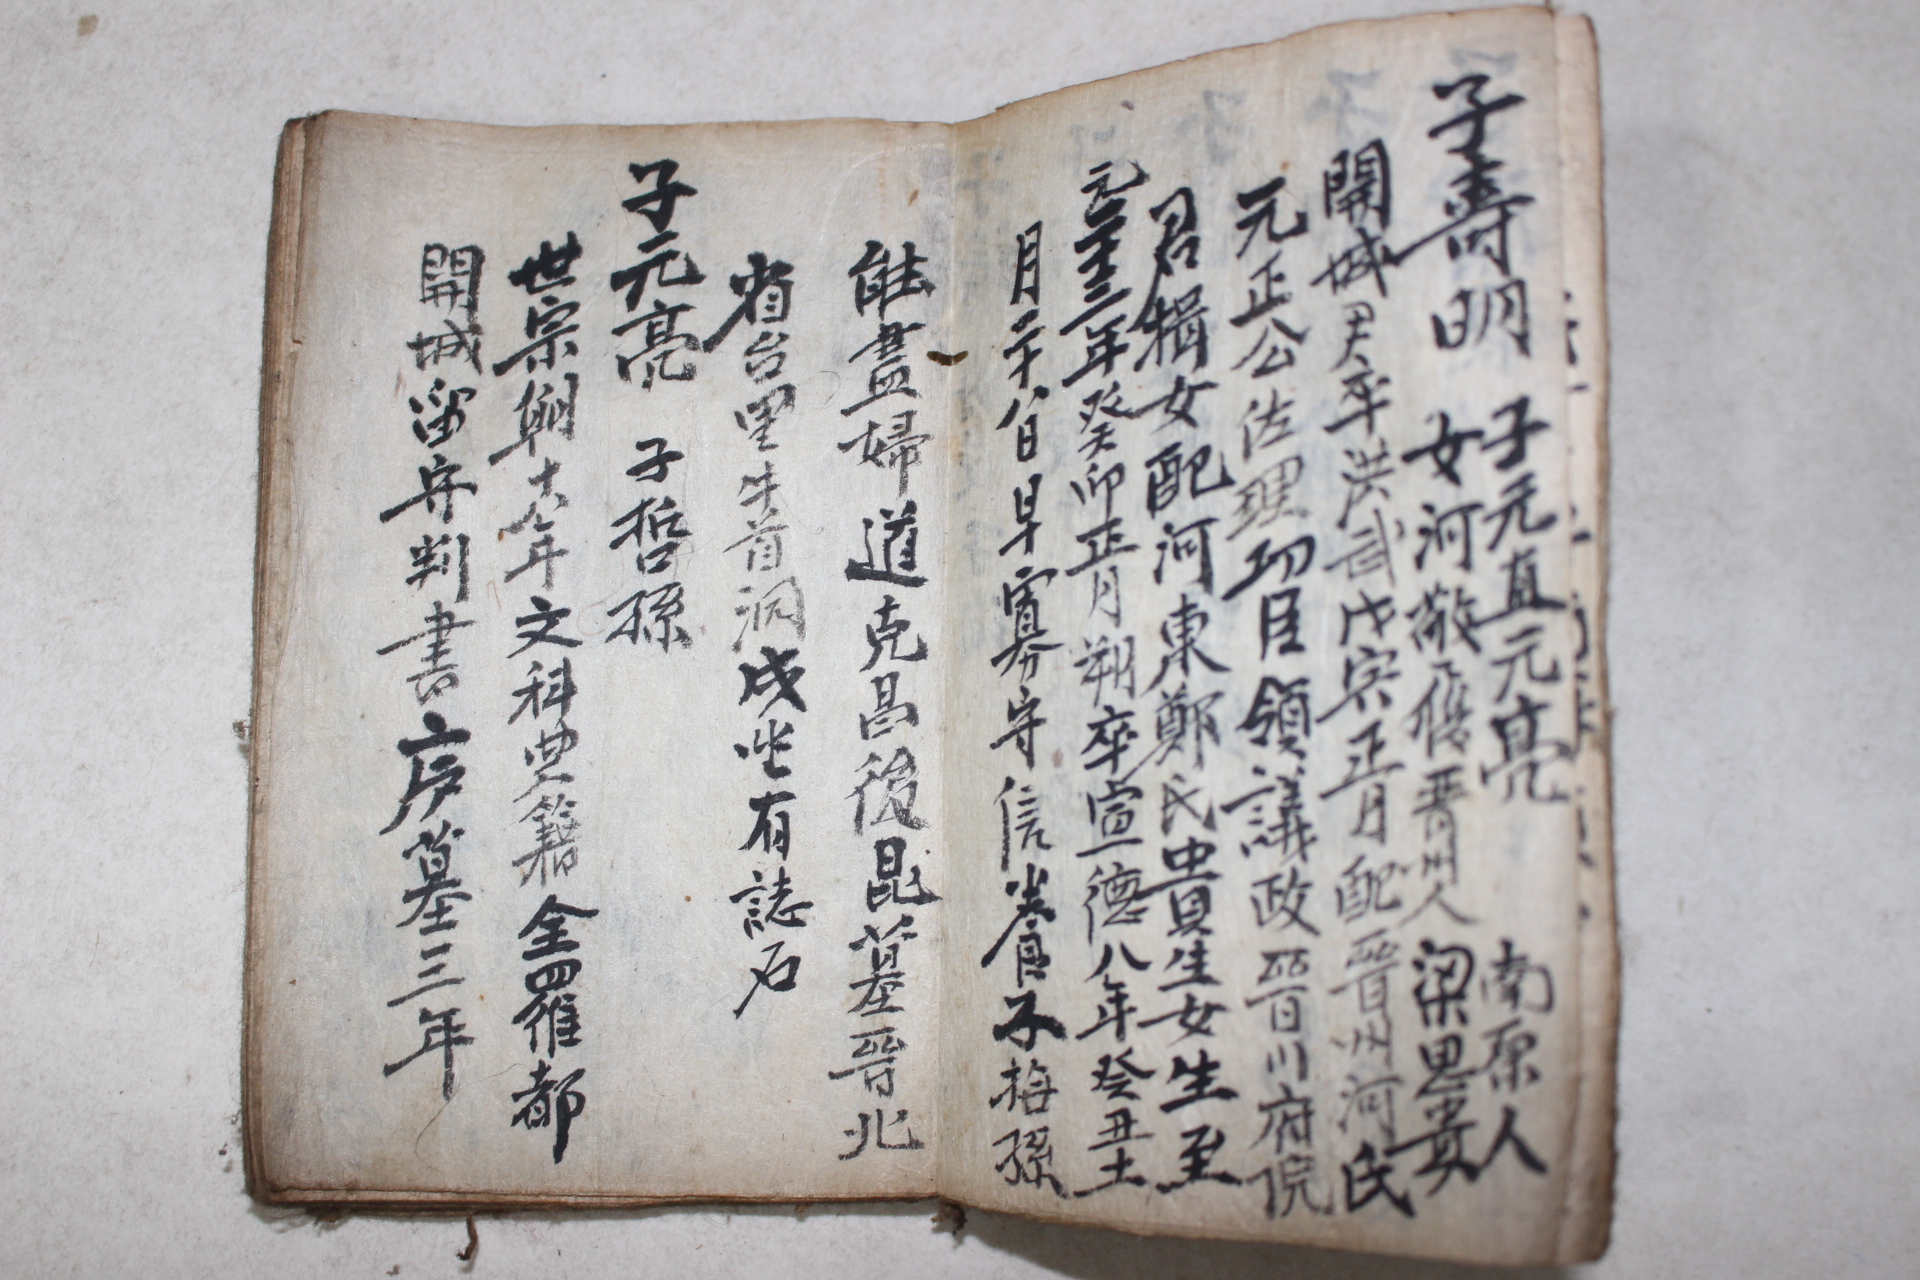 子壽明 子元直元亮 南原人
女河敬履晋州人 梁思貴
開城尹卒洪武戊寅正月配晋州河氏
元正公佐理功臣領議政晋川府院
君楫女配河東鄭氏中貴生女生至
元至三年癸卯正月朔卒宣德八年癸丑土
月二十八日早寡守信養子梅孫
能盡婦道克昌後昆墓晋北
省台里牛首洞戌坐有誌石
子元亮 子哲孫
世宗朝十八年文科典籍全羅都
開城留守判書序墓三年